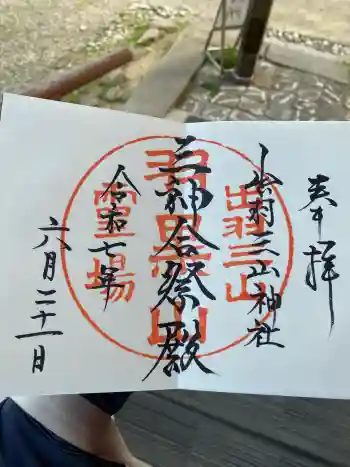 奉拝
出羽三山神社
三神合祭殿
令和七年
六月二十一日
出羽三山
羽黒山
霊場